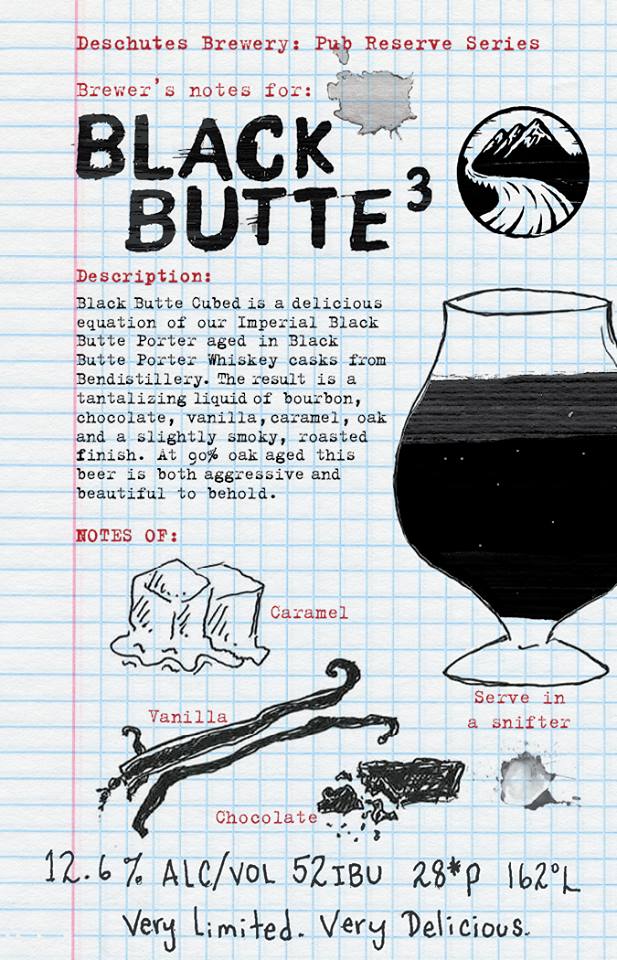 Deschutes Brewery: Pub Reserve Series
Brewer's notes for:
BLACK
BUTTE 3
Description:
Black Butte Cubed is a delicious
equation of our Imperial Black
Butte Porter aged in Black
Butte Porter Whiskey casks from
Bendistillery. The result is a
tantalizing liquid of bourbon,
chocolate, vanilla, caramel, oak
and a slightly smoky, roasted
finish. At 90% oak aged this
beer is both aggressive and
beautiful to behold.
NOTES OF:
Caramel
Serve in
a snifter
Vanilla
Chocolate
12.6% ALC/VOL 52 IBU 28*P 162°L
Very Limited. Very Delicious.